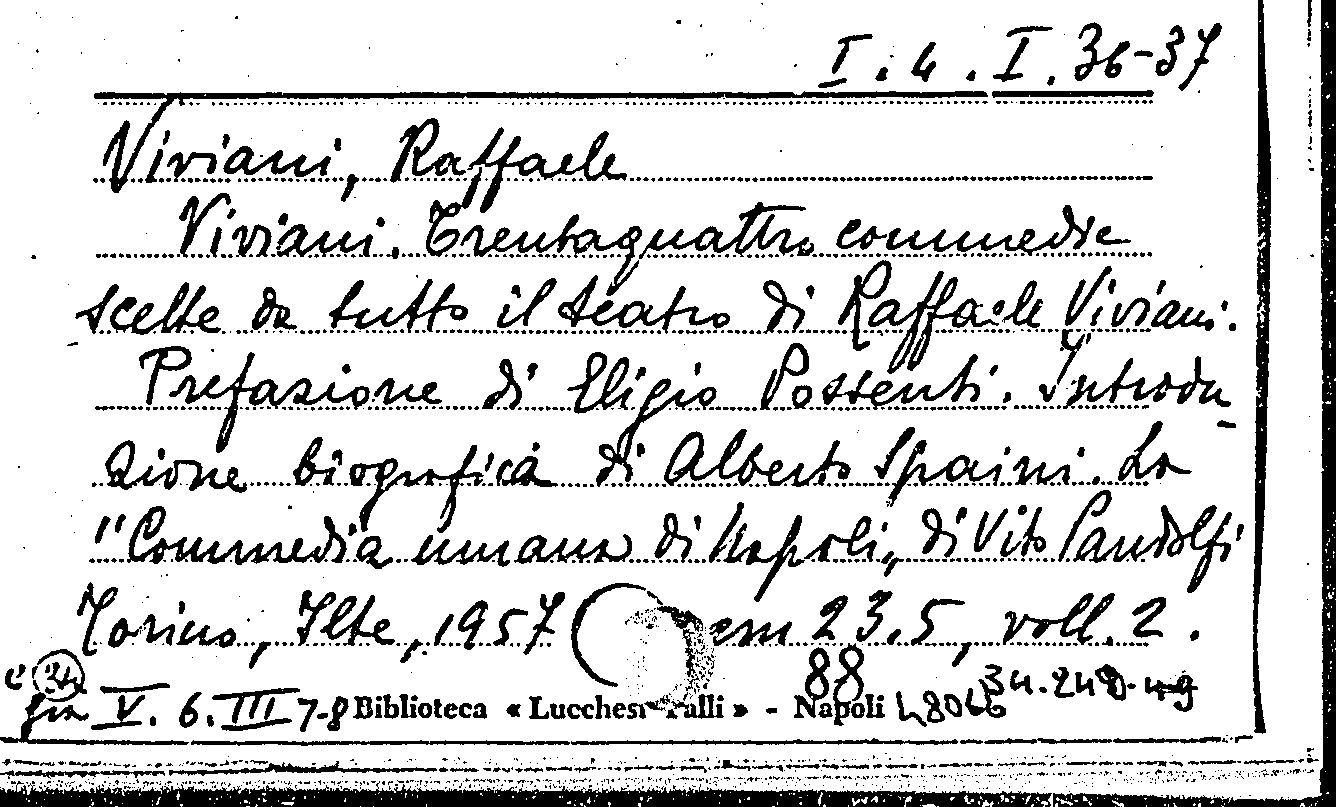 I. 4. I. 36-37
Viviani, Raffaele
Viviani. Trentaquattro commedie
scelte da tutto il teatro di Raffaele Viviani.
Prefazione di Eligio Possenti. Introdu-
zione biografica di Alberto Spaini. La
"Commedia umana di Napoli„ di Vito Pandolfi
Torino, Ilte, 1957 cm 23.5, voll. 2.
già V. 6. III 7-8 Biblioteca « Lucchesi Palli » - Napoli
88